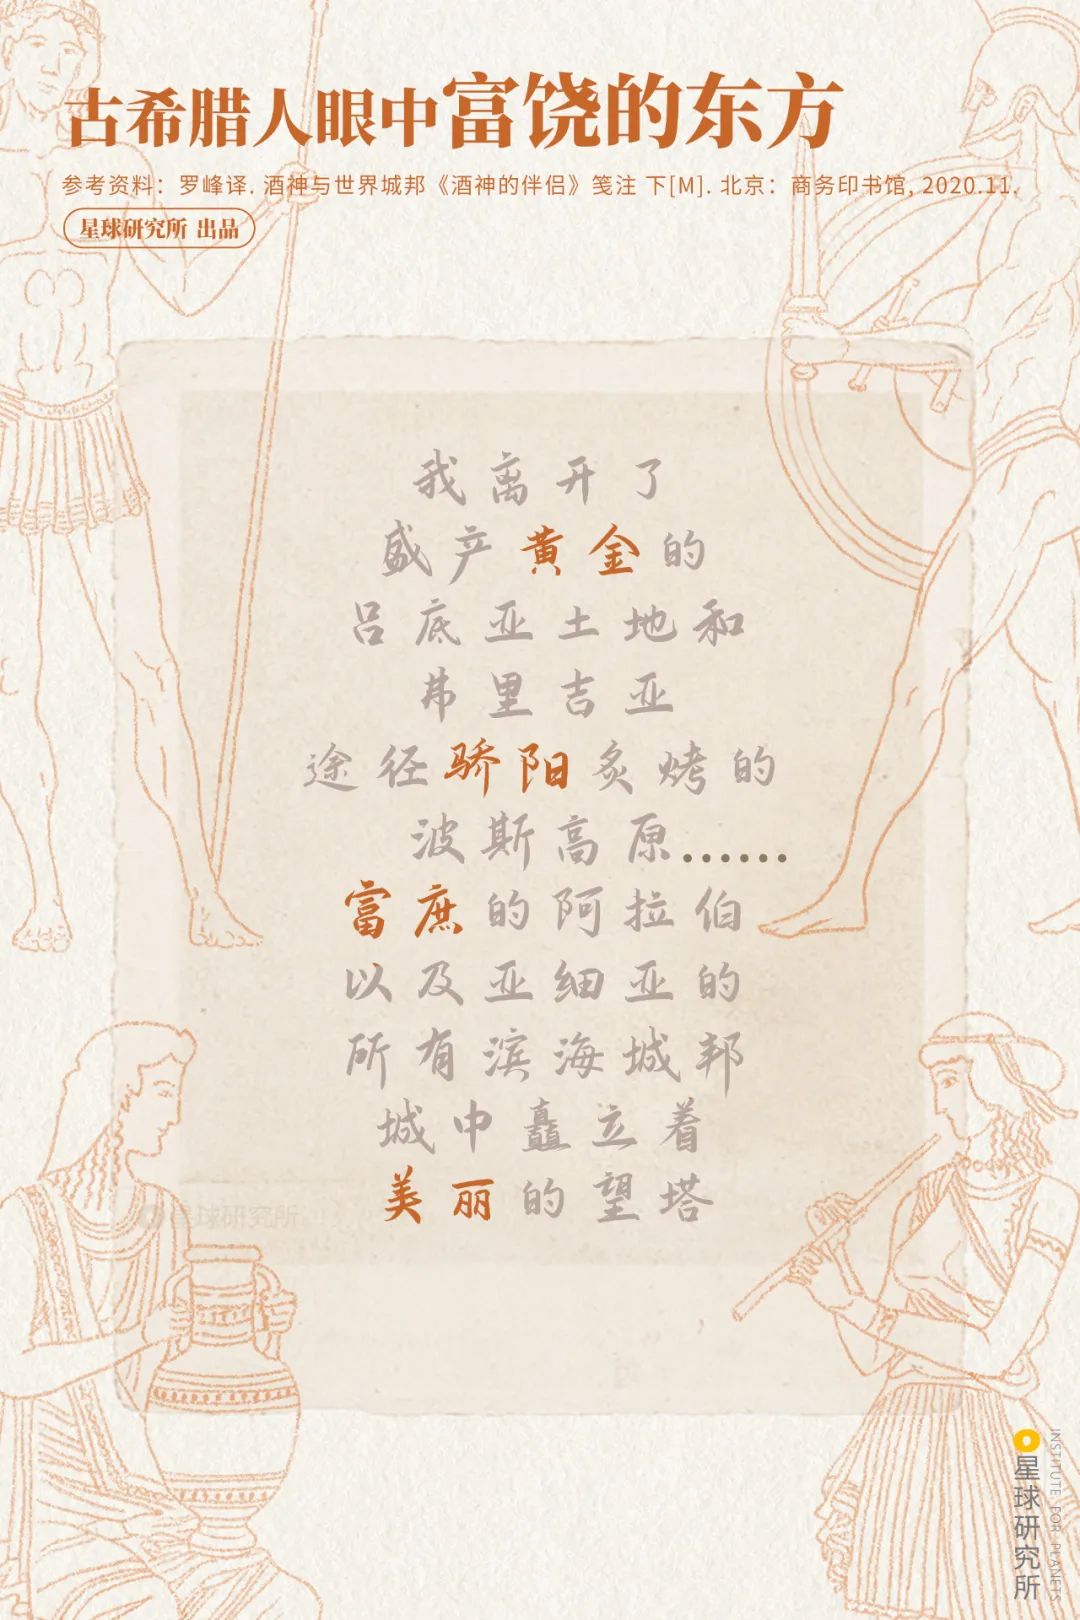 古希腊人眼中富饶的东方
参考资料：罗峰译. 酒神与世界城邦《酒神的伴侣》笺注 下[M]. 北京：商务印书馆, 2020.11.
星球研究所 出品
我离开了
盛产黄金的
吕底亚土地和
弗里吉亚
途径骄阳炙烤的
波斯高原……
富庶的阿拉伯
以及亚细亚的
所有滨海城邦
城中矗立着
美丽的望塔
星球研究所
星球研究所
INSTITUTE FOR PLANETS